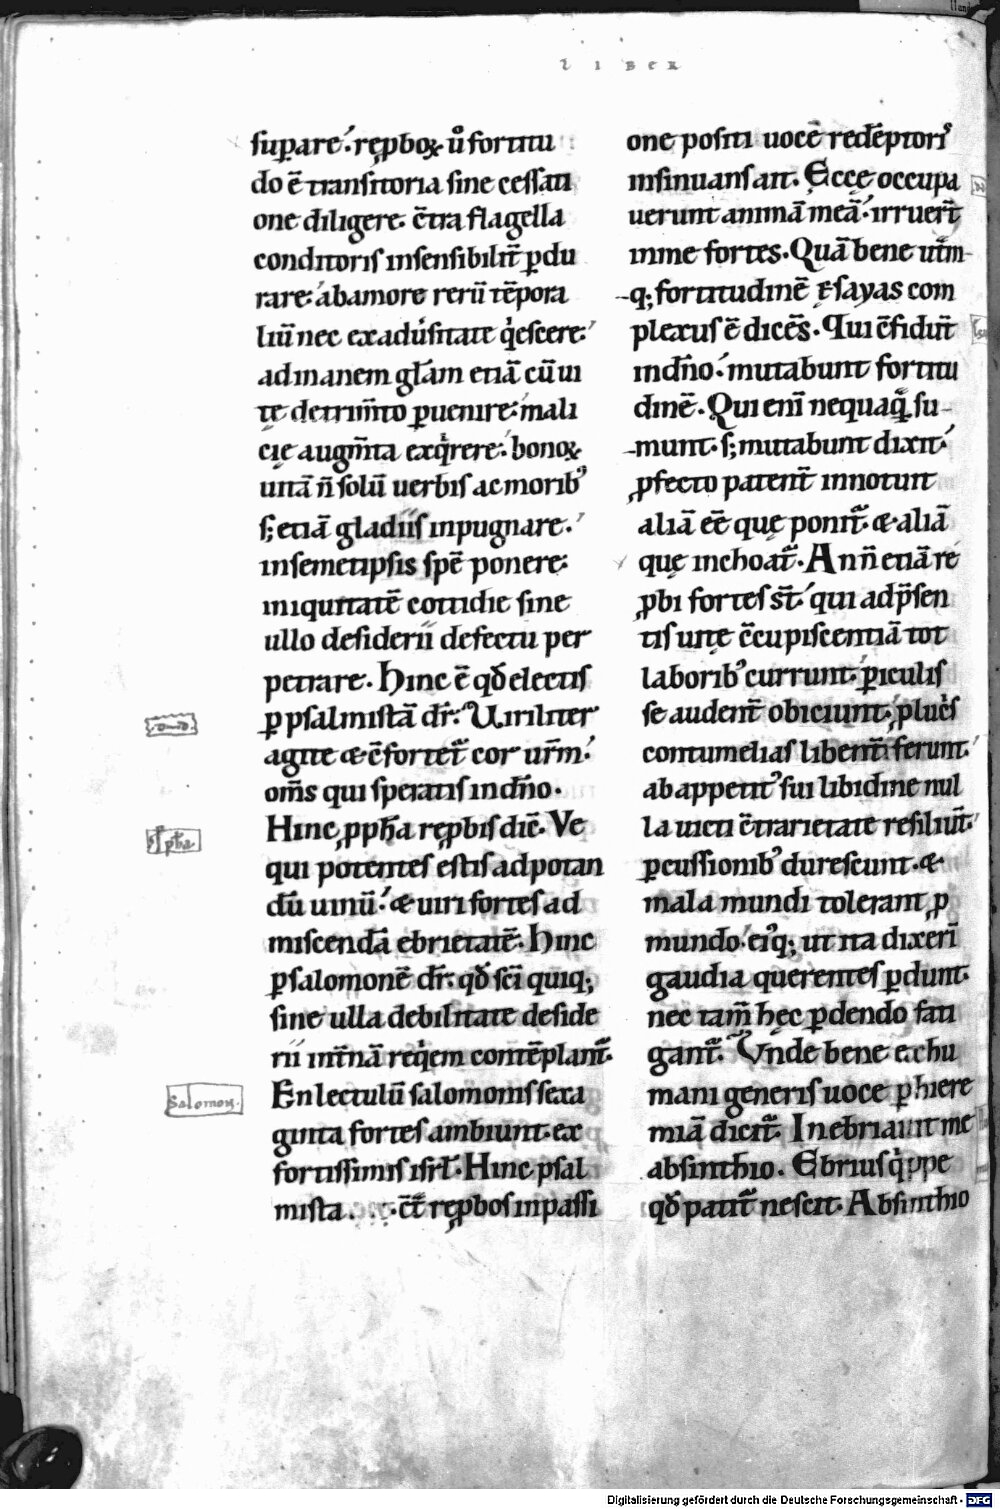 LIBER
suꝑare᷑.rep̱boꝝ ů fortitu
do ē transitoria sine cessati
one diligere. c̄tra flagella
conditoris insensibilit̄ ꝑdu
rare. ab amore rerū tēpora
liū nec ex aduͥsitate q̇escere.
ad inanem gl̄am etiā cū ui
tę detrim̄to ꝑuenire. mali
cię augm̄ta exq̇rere. bonoꝝ
uitā n̄ solū uerbis ac morib᾽
s; etiā gladiis inpugnare.
in semetipsis spē ponere.
iniquitatē cottidie sine
ullo desiderii defectu per
petrare. Hinc ē qđ electis
ꝑ psalmistā dr̄. Uiriliter
agite & c̄fortet̄ cor ur̄m.
om̄s qui speratis in dn̄o.
Hinc ꝓpħa rep̱bis dic̄. Ve
qui potentes estis ad potan
dū uinū. & uiri fortes ad
miscendā ebrietatē. Hinc
ꝑ salomonē dr̄. qđ sc̄i quiq;
sine ulla debilitate deside
rii int̄nā req̇em contēplant̄.
En lectulū salomonis sexa
ginta fortes ambiunt. ex
fortissimis isrl̄. Hinc psal
mista . . . c̄t̄ rep̱bos in passi
one positi uoce redēptoris
insinuans ait. Ecce occupa
uerunt animā meā. irruer̄t
in me fortes. Quā bene utrā
q; fortitudinē Esayas com
plexus ē dicēs. Qui c̄fidūt
in dn̄o. mutabunt fortitu
dinē. Qui eni nequaq̄ su
munt. s; mutabunt dixit.
ꝓfecto patent̄ innotuit
aliā eē que ponit̄. & aliā
que inchoat̄. An n̄ etiā re
ꝓbi fortes st̄. qui ad p̄sen
tis uitę c̄cupiscentiā tot
laborib᾽ currunt. ꝑiculis
se audent̄ obiciunt. ꝓ luc̄s
contumelias libent̄ ferunt.
ab appetit᾽ sui libidine nul
la uicti c̄trarietate resiliūt.
ꝑcussionib᾽ durescunt. &
mala mundi tolerant ꝓ
mundo. ei᾽q; ut ita dixeri
gaudia querentes ꝑdunt.
nec tam̄ hęc ꝑdendo fati
gant̄. Unde bene ex hu
mani generis uoce ꝑ hiere
miā dicit̄. Inebriauit me
absinthio. Ebrius q̇ppe
qđ patit̄ nescit. Absinthio
Salomon.
Digitalisierung gefördert durch die Deutsche Forschungsgemeinschaft - DFG